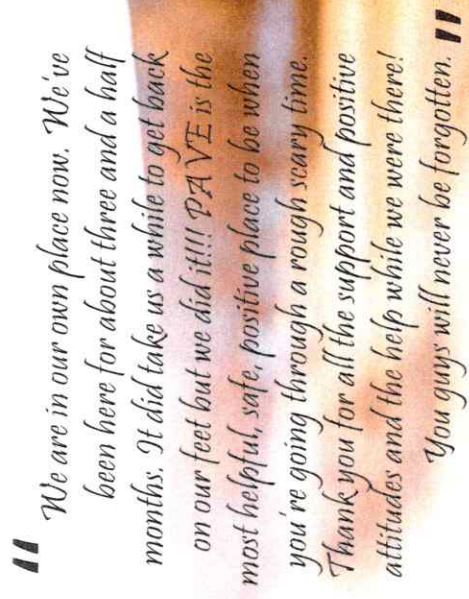 "
We are in our own place now. We've
been here for about three and a half
months. It did take us a while to get back
on our feet but we did it!!! PAVE is the
most helpful, safe, positive place to be when
you're going through a rough scary time.
Thank you for all the support and positive
attitudes and the help while we were there!
You guys will never be forgotten. "